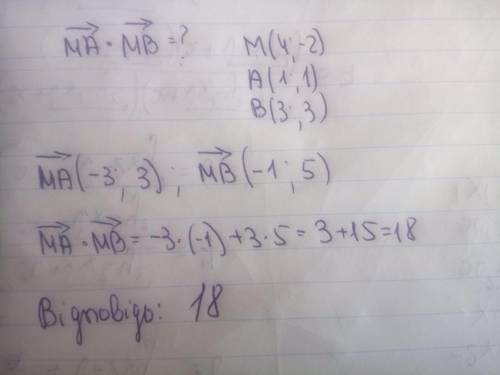 $\overrightarrow{MA} \cdot \overrightarrow{MB} = ?$ M(4; -2)
A(1; 1)
B(3; 3)
$\overrightarrow{MA}(-3; 3)$ ; $\overrightarrow{MB}(-1; 5)$
$\overrightarrow{MA} \cdot \overrightarrow{MB} = -3 \cdot (-1) + 3 \cdot 5 = 3 + 15 = 18$
Відповідь: 18